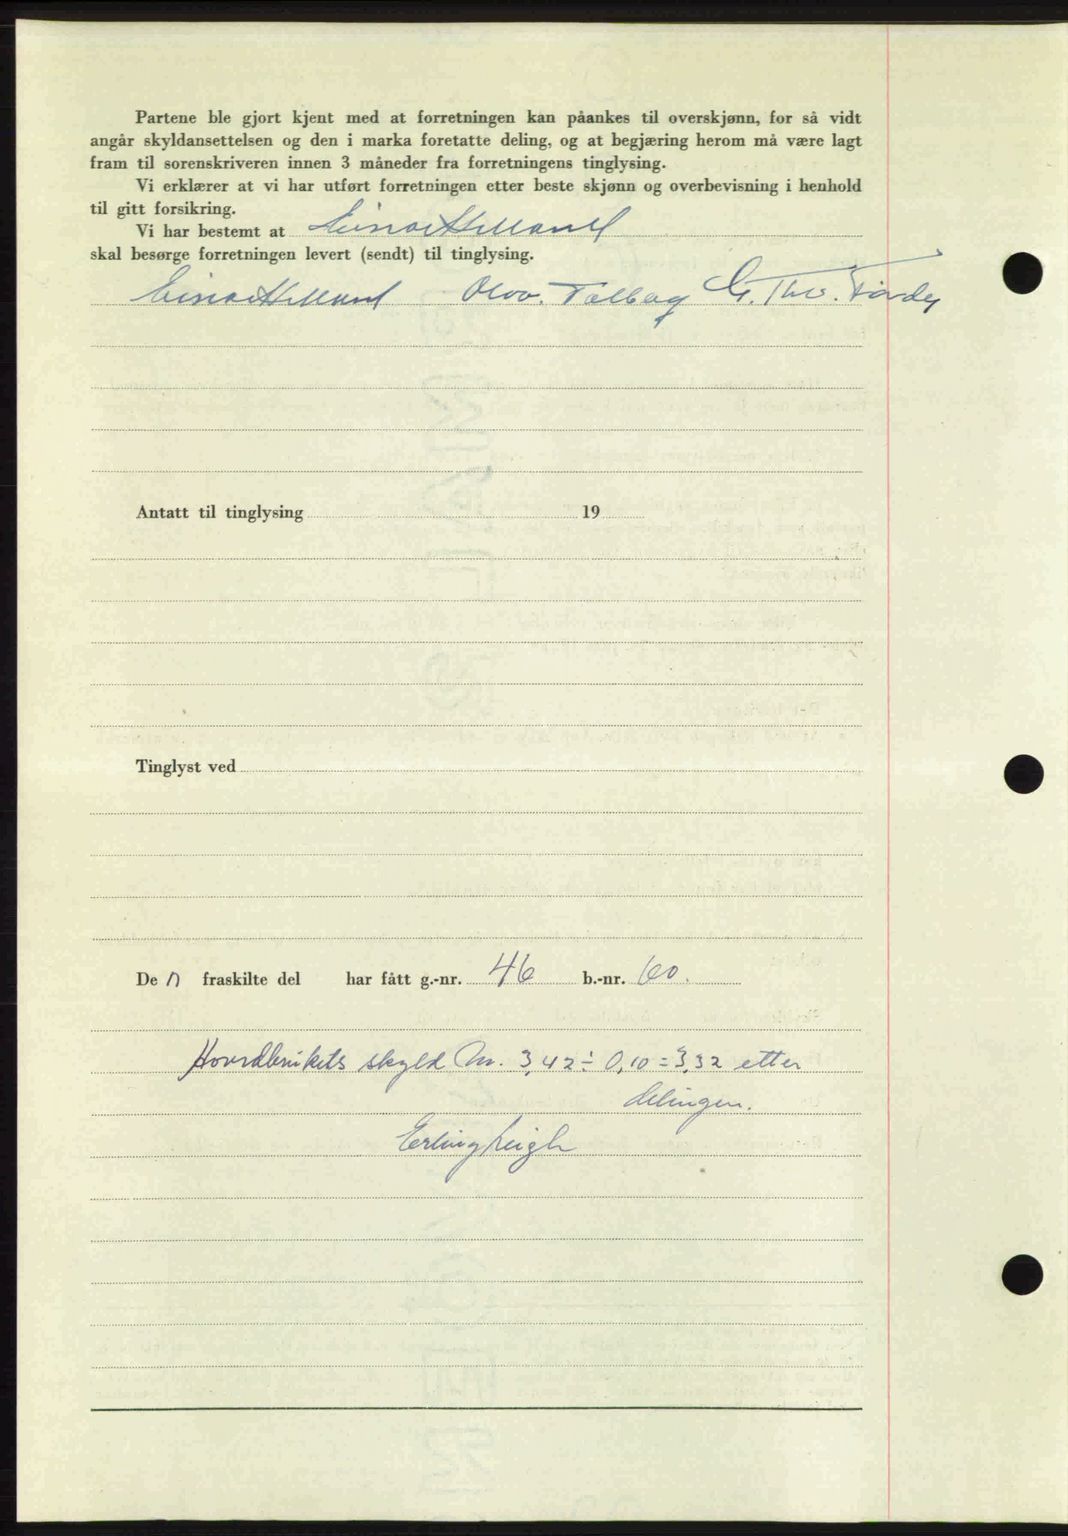 Partene ble gjort kjent med at forretningen kan påankes til overskjønn, for så vidt
angår skyldansettelsen og den i marka foretatte deling, og at begjæring herom må være lagt
fram til sorenskriveren innen 3 måneder fra forretningens tinglysing.
Vi erklærer at vi har utført forretningen etter beste skjønn og overbevisning i henhold
til gitt forsikring.
Vi har bestemt at Einar Helland
skal besørge forretningen levert (sendt) til tinglysing.
Einar Helland Olav. Talberg G. Thv. Fardey
Antatt til tinglysing 19
Tinglyst ved
De n fraskilte del har fått g.-nr. 46 b.-nr. 60.
Hovedbrukets skyld 3,42 ÷ 0,10 = 3,32 etter
delingen.
Erling Leigh